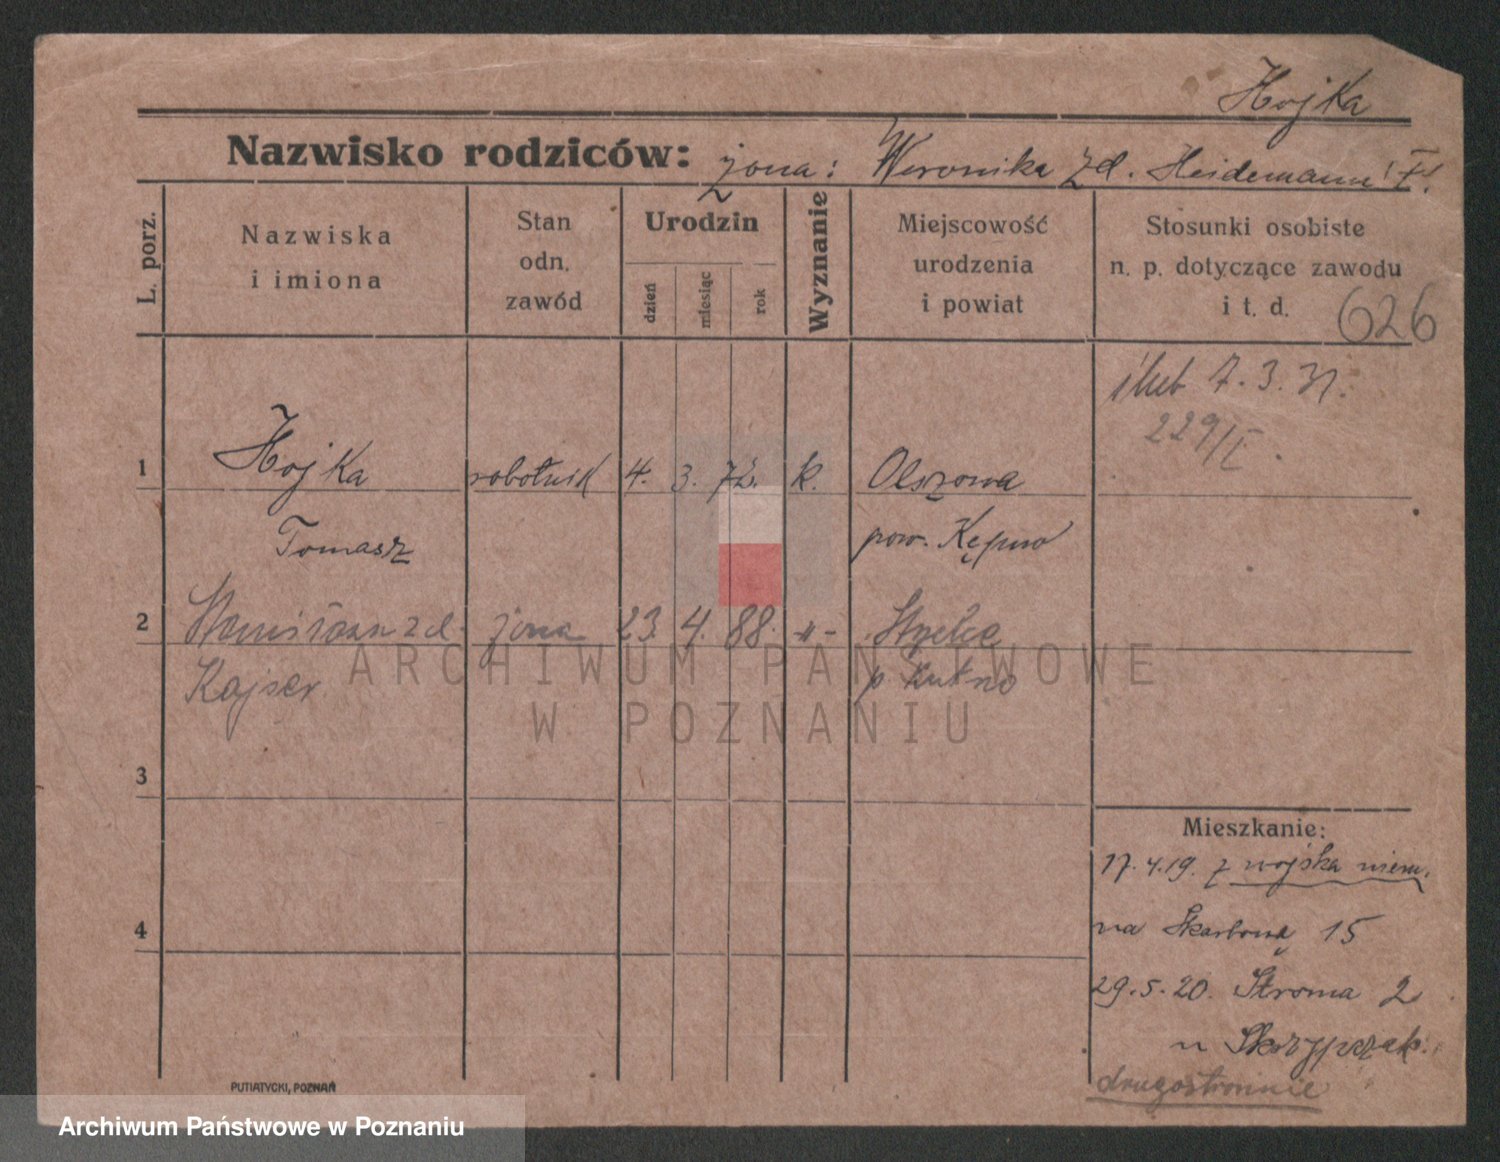 Hojka
Nazwisko rodziców: żona: Weronika zd. Heidemann
L. porz.
Nazwiska
i imiona
Stan
odn.
zawód
Urodzin
dzień
miesiąc
rok
Wyznanie
Miejscowość
urodzenia
i powiat
Stosunki osobiste
n. p. dotyczące zawodu
i t. d. 626
ślub 7. 3. 31.
229/I.
1 Hojka robotnik 4. 3. 72. k. Olszowa
Tomasz pow. Kępno
2 zd. żona 23. 4. 88. -"- Strzelce
Kajser p. Kutno
ARCHIWUM PAŃSTWOWE
W POZNANIU
3
Mieszkanie:
17.4.19. z wojska niem.
4 na Skarbową 15
29.5.20. Stroma 2
u Skrzypczak.
drugostronnie
PUTIATYCKI, POZNAŃ
Archiwum Państwowe w Poznaniu